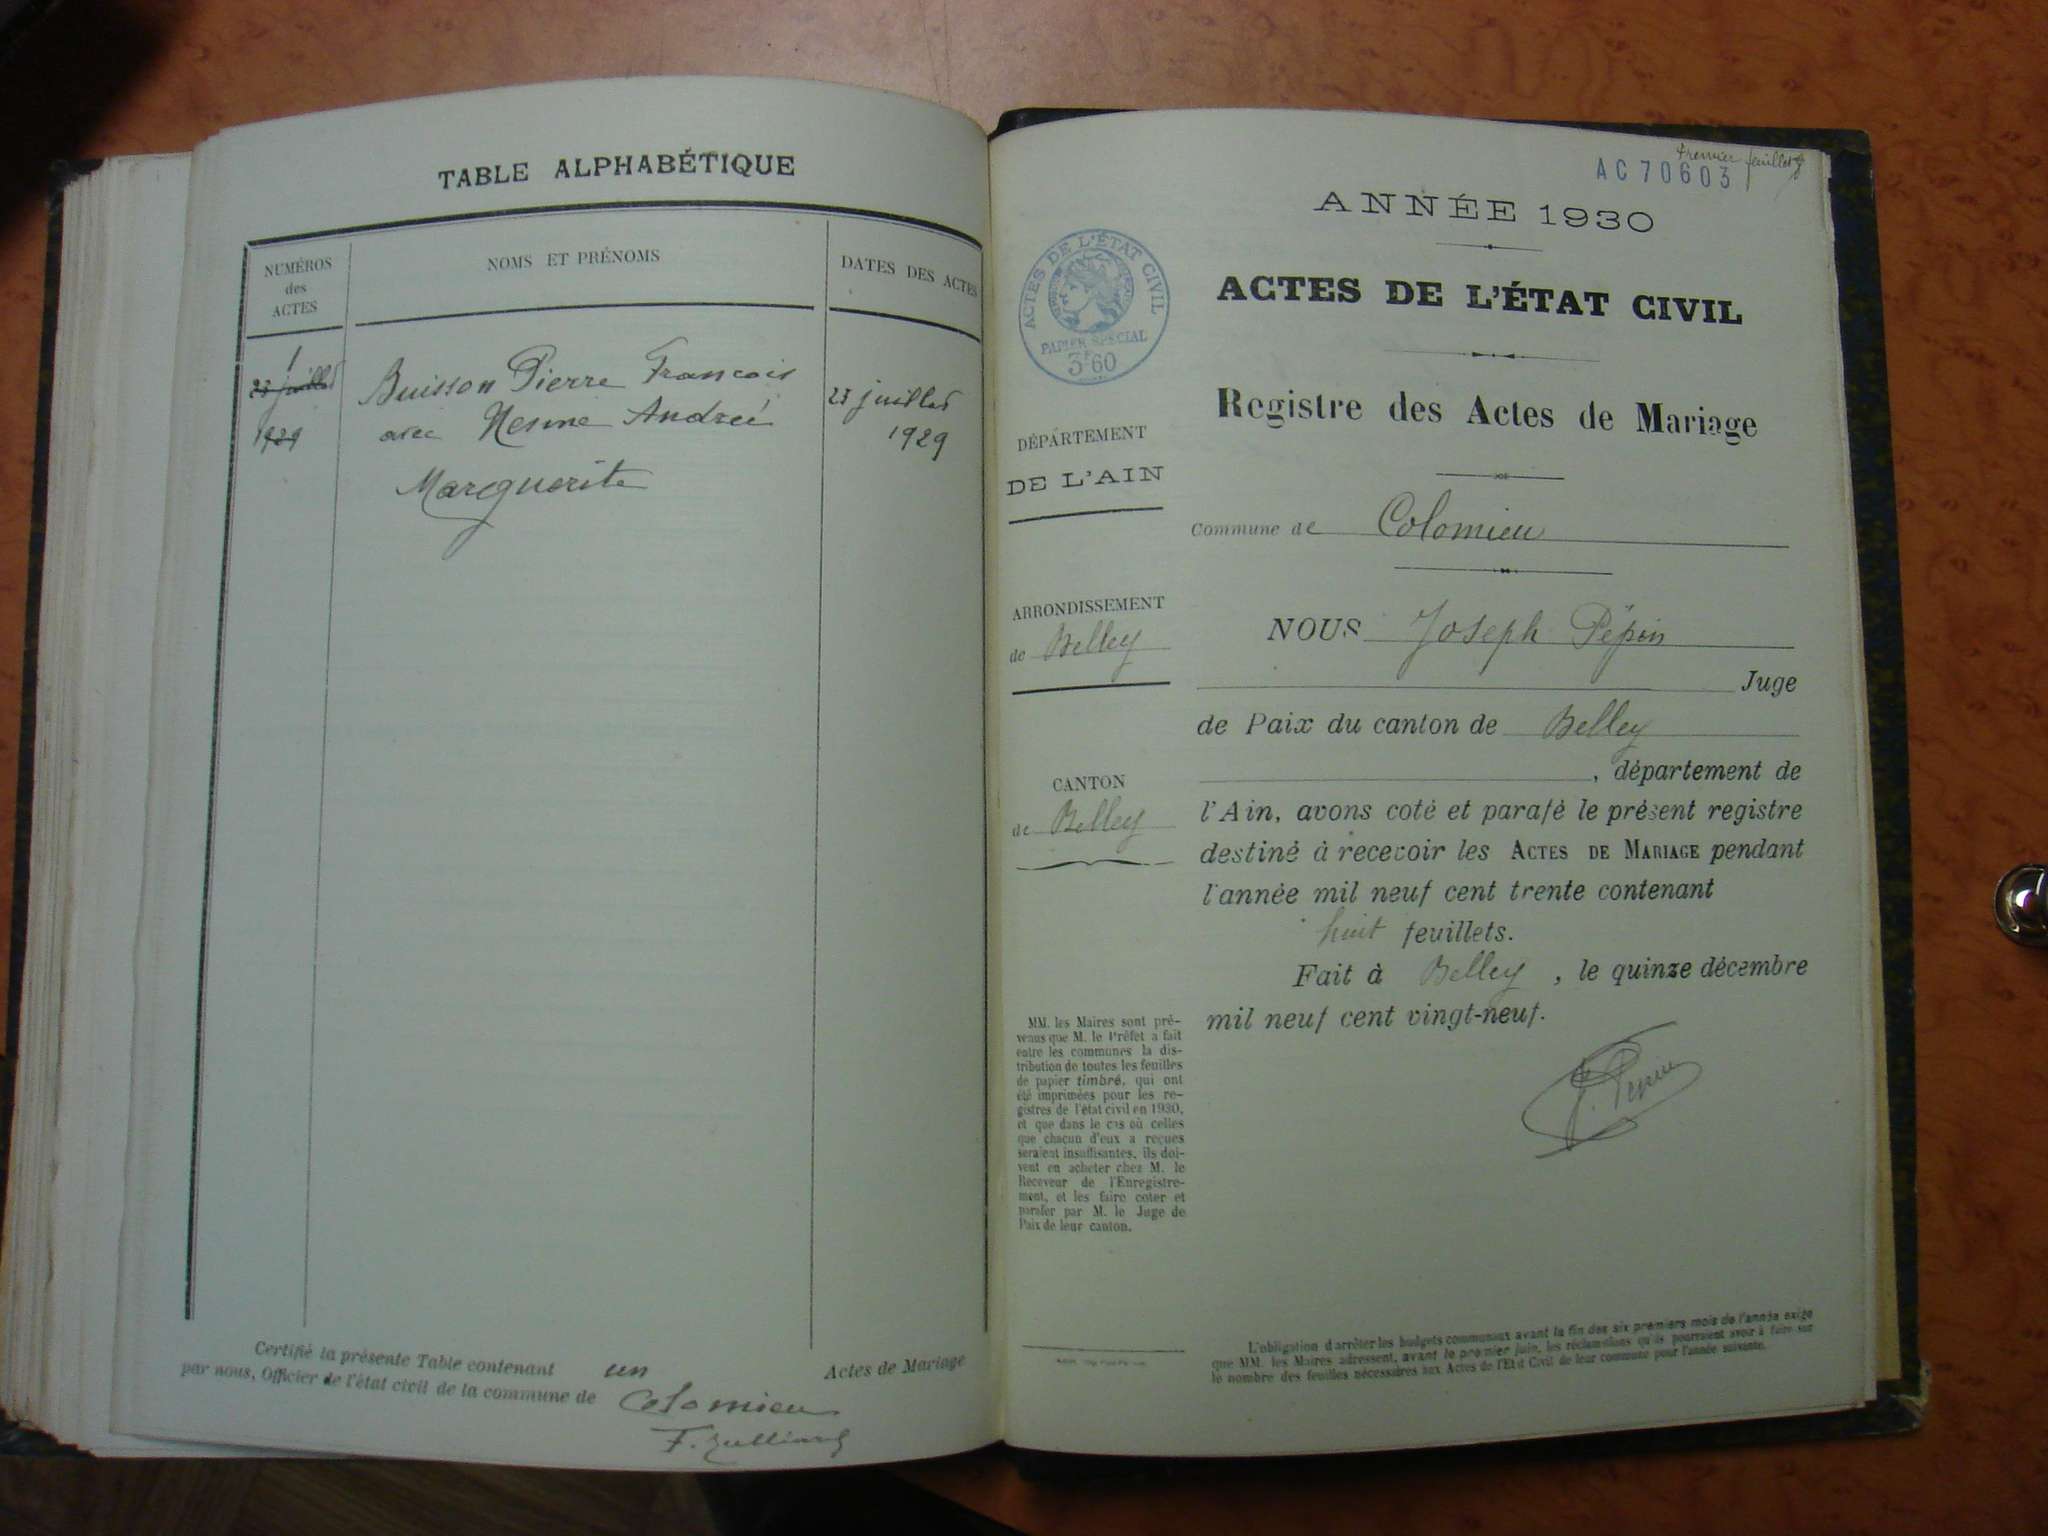 TABLE ALPHABÉTIQUE
NUMÉROS
des
ACTES
NOMS ET PRÉNOMS
DATES DES ACTES
1
23 juillet
1929
Buisson Pierre Francois
avec Nesme Andreé
Marguerite
23 juillet
1929
Certifié la présente Table contenant un Actes de Mariage
par nous, Officier de l'état civil de la commune de Colomieu
F. Julliard
Premier feuillet
AC 70603
ANNÉE 1930
ACTES DE L'ÉTAT CIVIL
PAPIER SPÉCIAL
3F60
ACTES DE L'ÉTAT CIVIL
Registre des Actes de Mariage
DÉPARTEMENT
DE L'AIN
Commune de Colomieu
ARRONDISSEMENT
de Belley
NOUS Joseph Pépin
Juge
de Paix du canton de Belley
, département de
CANTON
de Belley
l'Ain, avons coté et parafé le présent registre
destiné à recevoir les ACTES DE MARIAGE pendant
l'année mil neuf cent trente contenant
huit feuillets.
Fait à Belley, le quinze décembre
mil neuf cent vingt-neuf.
J. Pépin
MM. les Maires sont pré-
venus que M. le Préfet a fait
entre les communes la dis-
tribution de toutes les feuilles
de papier timbré, qui ont
été imprimées pour les re-
gistres de l'état civil en 1930,
et que dans le cas où celles
que chacun d'eux a reçues
seraient insuffisantes, ils doi-
vent en acheter chez M. le
Receveur de l'Enregistre-
ment, et les faire coter et
parafer par M. le Juge de
Paix de leur canton.
L'obligation d'arrêter les budgets communaux avant la fin des six premiers mois de l'année exige
que MM. les Maires adressent, avant le premier juin, les réclamations qu'ils pourraient avoir à faire sur
le nombre des feuilles nécessaires aux Actes de l'Etat Civil de leur commune pour l'année suivante.